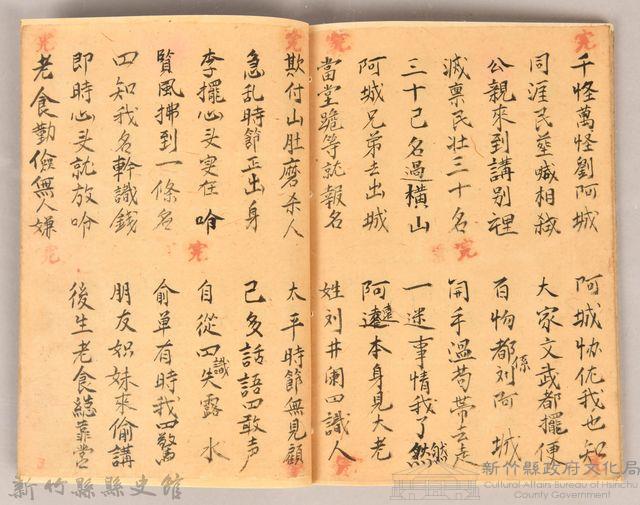 千怪萬怪劉阿城
阿城协佐我也知
同涯民壅喊相弒
大家文武都擺便
公親來到講别裡
百物都係刘阿城
滅禀民壮三十名
開手溫苟帶去走
三十己名過橫山
一迷事情我了然
阿城兄弟去出城
阿達本身見大老
當堂跪等就報名
姓刘井阑四識人
欺付山肚磨杀人
太平時節無見顧
急乱時節正出身
己多話語四敢声
李擺心头安在吟
自從四識失露水
賢風拂到一條名
俞单有時我四驚
四知我名幹識錢
朋友姒妹來偷講
即時心头就放吟
後生老食総靠営
老食勤儉無人嫌
新竹縣縣史館
新竹縣政府文化局
Cultural Affairs Bureau of Hsinchu
County Government